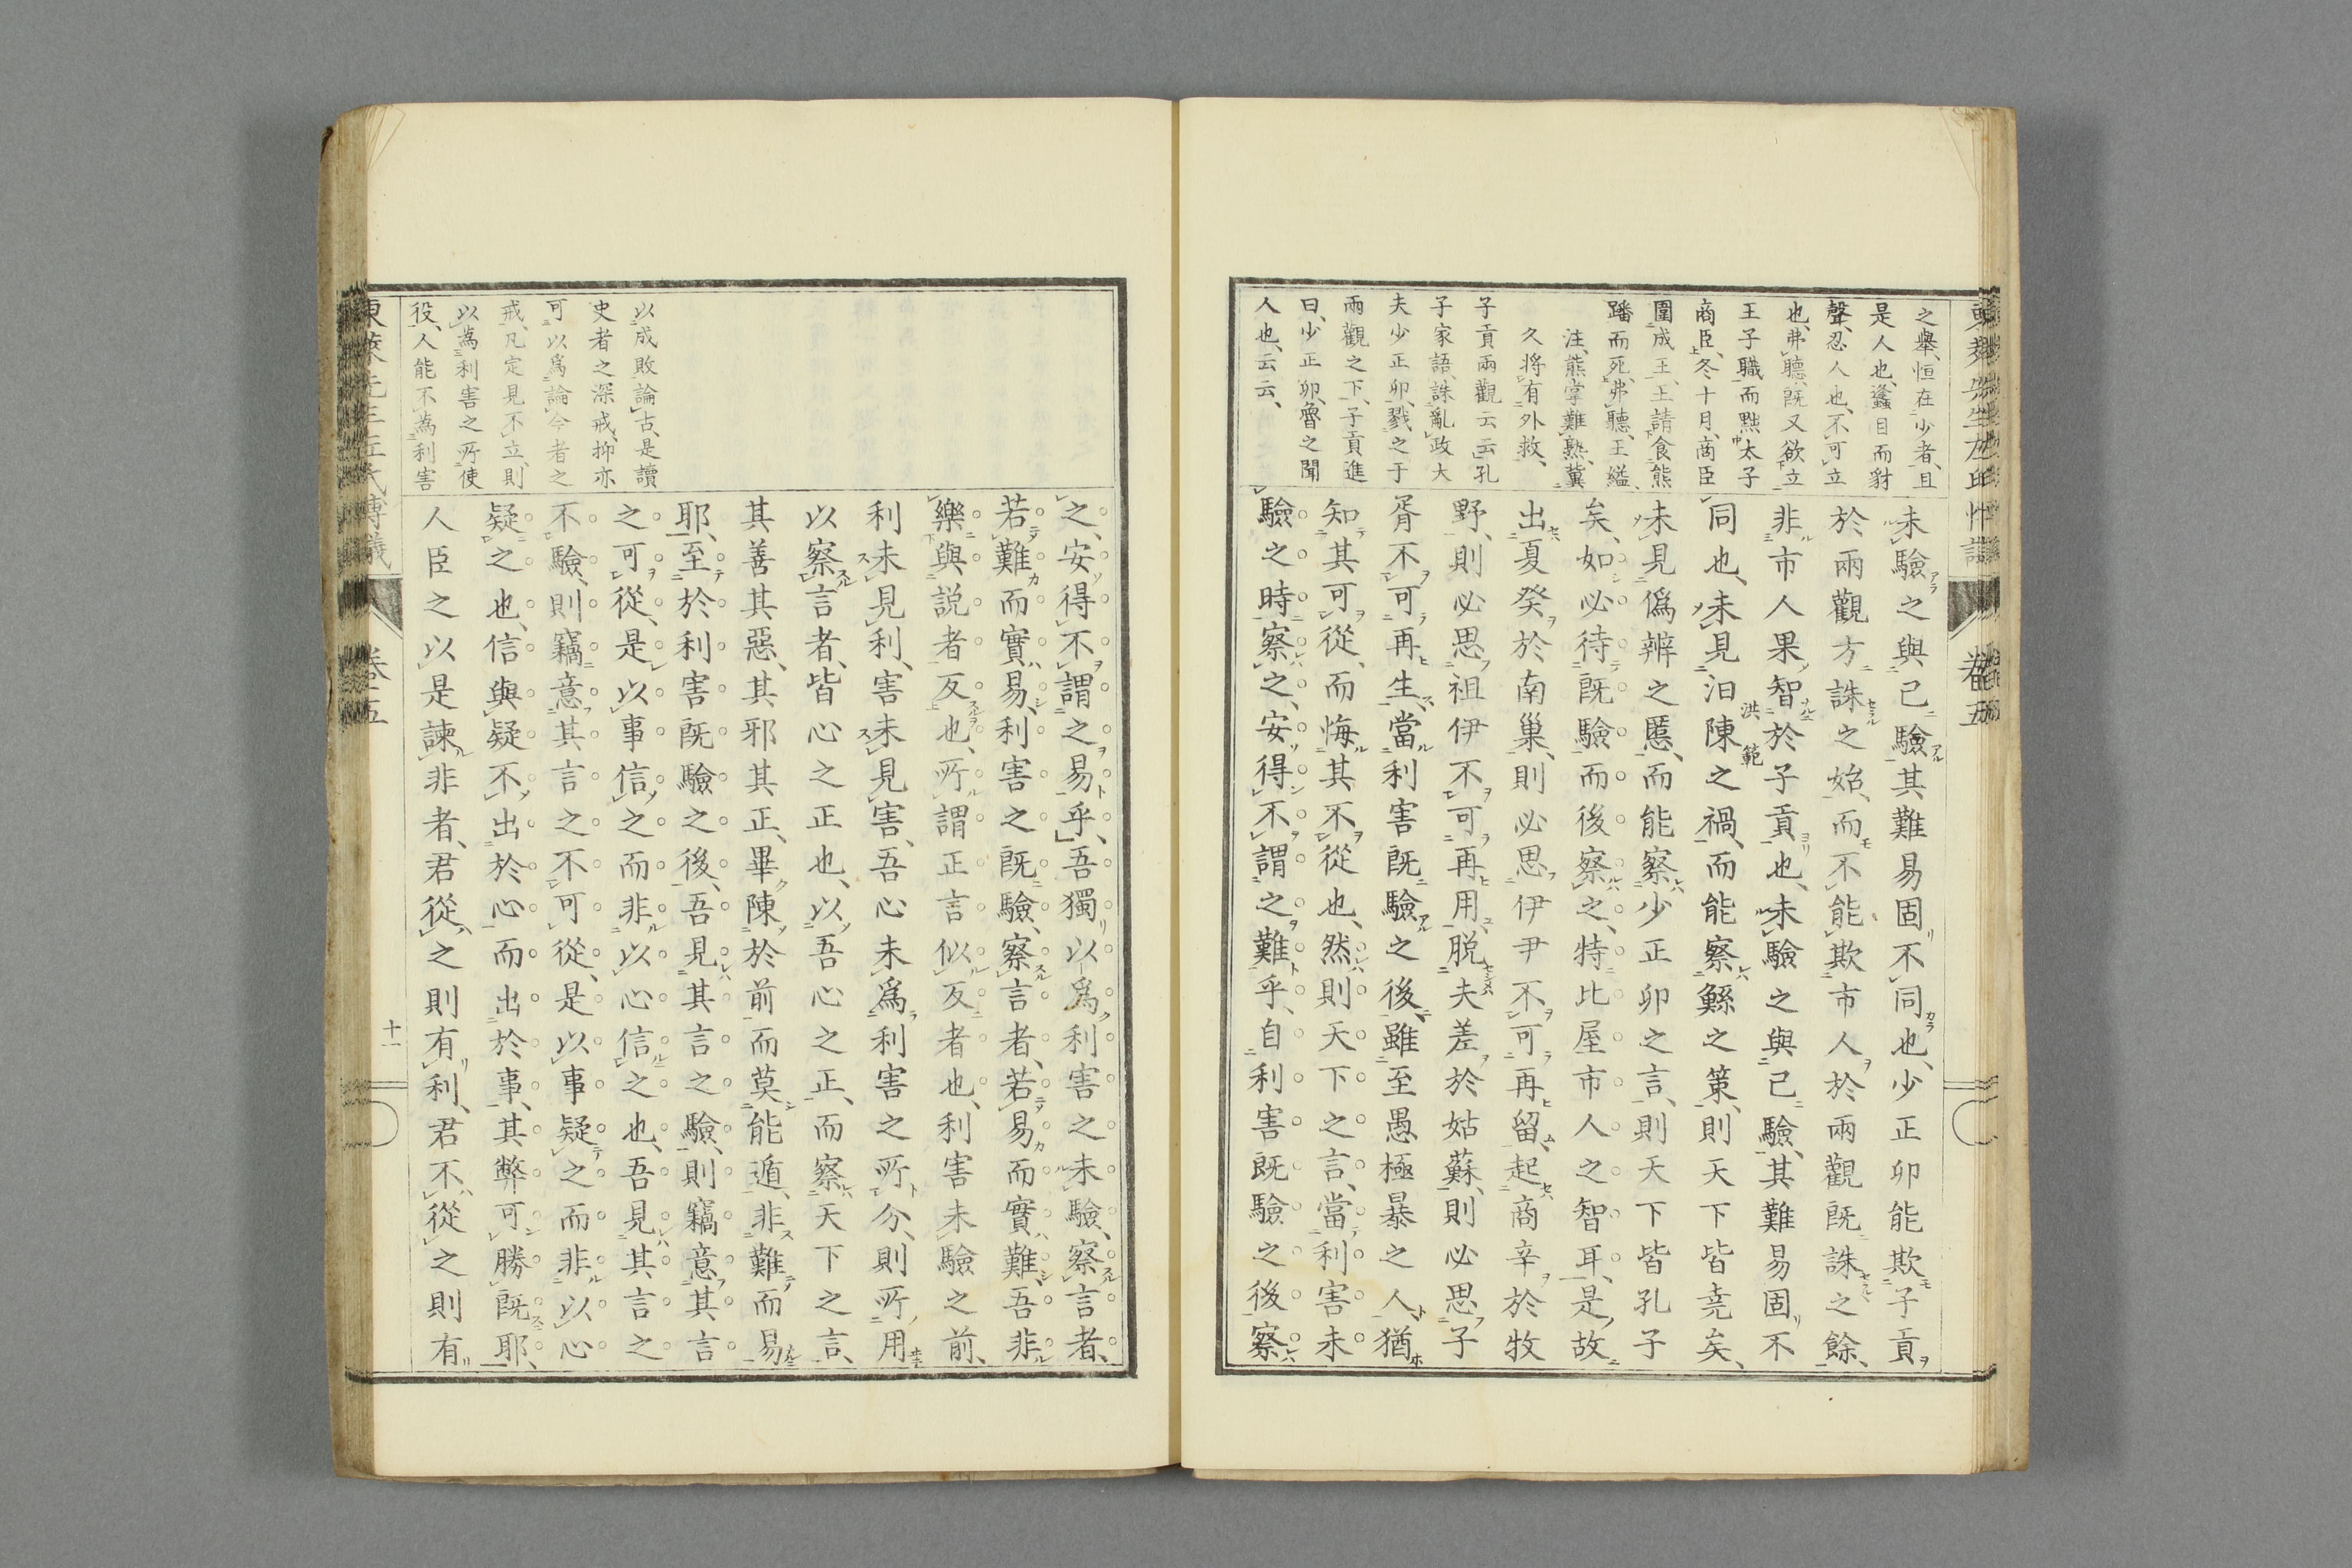 之擧、恒在少者、且
是人也、蠭目而豺
聲、忍人也、不可立
也、弗聽、既又欲立
王子職而黜太子
商臣、冬十月、商臣
圍成王、王請食熊
蹯而死、弗聽、王縊、
注、熊掌難熟、冀
久將有外救、
子貢兩觀云云」孔
子家語、誅亂政大
夫少正卯、戮之于
兩觀之下、子貢進
曰、少正卯、魯之聞
人也、云云、
未驗之與已驗其難易固不同也、少正卯能欺子貢
於兩觀方誅之始、而不能欺市人於兩觀既誅之餘、
非市人果智於子貢也、未驗之與已驗、其難易固不
同也、未見汨陳之禍、而能察鯀之策、則天下皆堯矣、
洪範
未見僞辨之慝、而能察少正卯之言、則天下皆孔子
矣、如必待既驗而後察之、特比屋市人之智耳、是故
出夏癸於南巢、則必思伊尹不可再留、起商辛於牧
野、則必思祖伊不可再用、脱夫差於姑蘇、則必思子
胥不可再生、當利害既驗之後、雖至愚極暴之人、猶
知其可從、而悔其不從也、然則天下之言、當利害未
驗之時察之、安得不謂之難乎、自利害既驗之後察
之、安得不謂之易乎」、吾獨以爲利害之未驗、察言者、
若難而實易、利害之既驗、察言者、若易而實難、吾非
樂與説者反也、所謂正言似反者也、利害未驗之前、
利未見利、害未見害、吾心未爲利害之所分、則所用
以察言者、皆心之正也、以吾心之正、而察天下之言、
其善其惡、其邪其正、畢陳於前而莫能遁、非難而易
耶、至於利害既驗之後、吾見其言之驗、則竊意其言
之可從、是以事信之而非以心信之也、吾見其言之
不驗、則竊意其言之不可從、是以事疑之而非以心
疑之也、信與疑不出於心而出於事、其弊可勝既耶、
人臣之以是諫非者、君從之則有利、君不從之則有
以成敗論古、是讀
史者之深戒、抑亦
可以爲論今者之
戒、凡定見不立、則
以爲利害之所使
役、人能不爲利害
卷五
十一